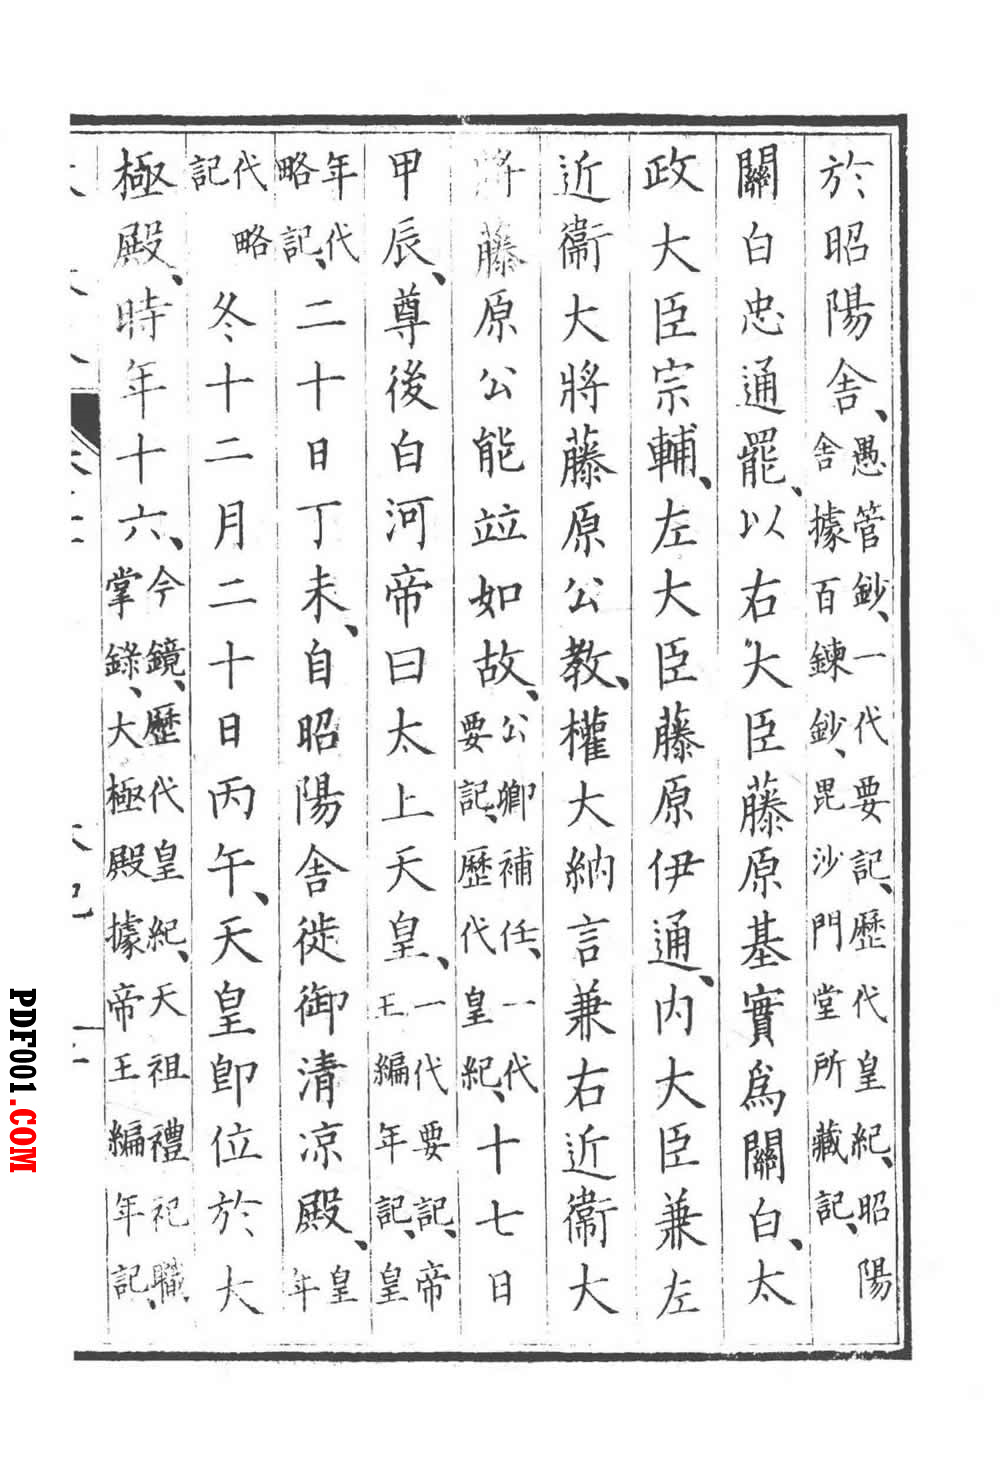 於昭陽舎、愚管鈔、一代要記、歷代皇紀、昭陽舎據百鍊鈔、毘沙門堂所藏記、
關白忠通罷、以右大臣藤原基實爲關白、太
政大臣宗輔、左大臣藤原伊通、内大臣兼左
近衞大將藤原公教、權大納言兼右近衞大
將藤原公能竝如故、公卿補任、一代要記、歷代皇紀、十七日
甲辰、尊後白河帝曰太上天皇、一代要記、帝王編年記、皇
年代略記、二十日丁未、自昭陽舎徙御清凉殿、皇年
代略記冬十二月二十日丙午、天皇卽位於大
極殿、時年十六、今鏡、歷代皇紀、天祖禮祀職掌錄、大極殿據帝王編年記、
PDF001.COM